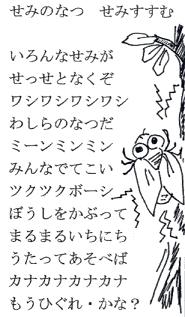 せみのなつ　せみすすむ
いろんなせみが
せっせとなくぞ
ワシワシワシワシ
わしらのなつだ
ミーンミンミン
みんなでてこい
ツクツクボーシ
ぼうしをかぶって
まるまるいちにち
うたってあそべば
カナカナカナカナ
もうひぐれ・かな？